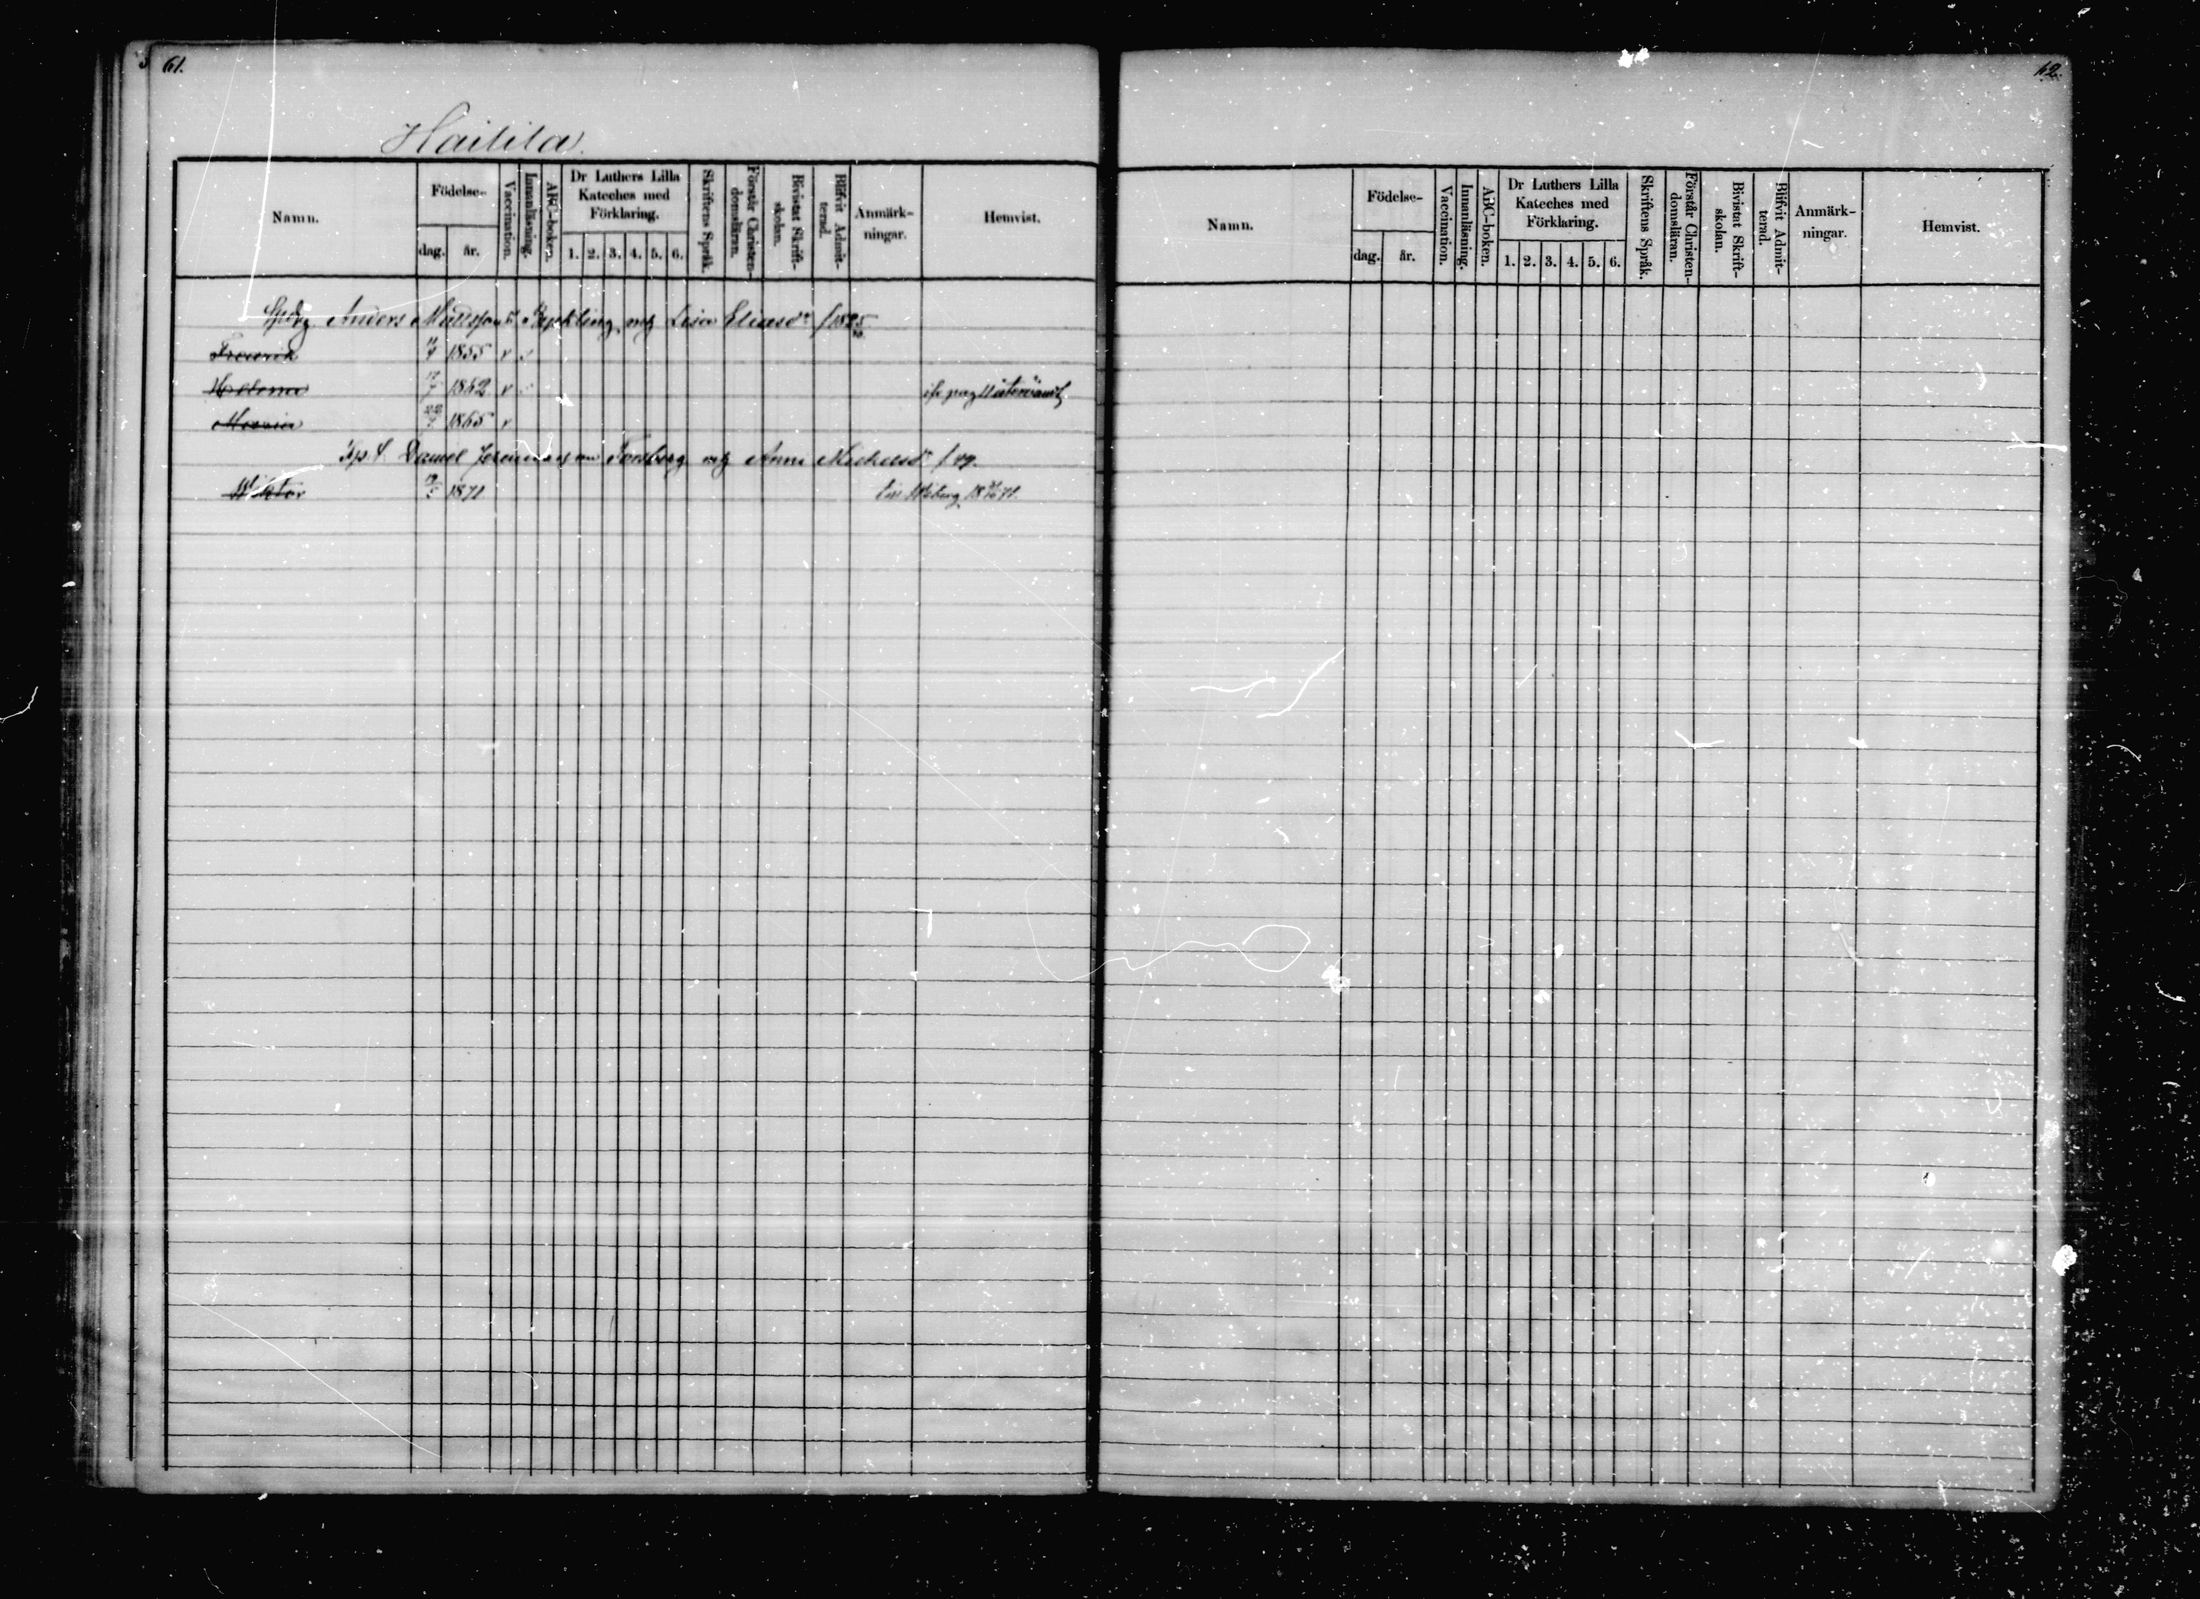 61.
Haitila.
Namn. Födelse- dag. år. Vaccination. Innanläsning. ABC-boken. Dr Luthers Lilla Kateches med Förklaring. 1. 2. 3. 4. 5. 6. Skriftens Språk. Förstår Christen-domsläran. Bivistat Skrift-skolan. Blifvit Admit-terad. Anmärk-ningar. Hemvist.
Anders Mattsson Lisa Eliasdr
Fredrik 1855 v
Helena 12/7 1862 v
Maria 22/7 1865 v
Daniel Forsberg Anna Michelsdr
Wiktor 1871
62.
Namn. Födelse- dag. år. Vaccination. Innanläsning. ABC-boken. Dr Luthers Lilla Kateches med Förklaring. 1. 2. 3. 4. 5. 6. Skriftens Språk. Förstår Christen-domsläran. Bivistat Skrift-skolan. Blifvit Admit-terad. Anmärk-ningar. Hemvist.